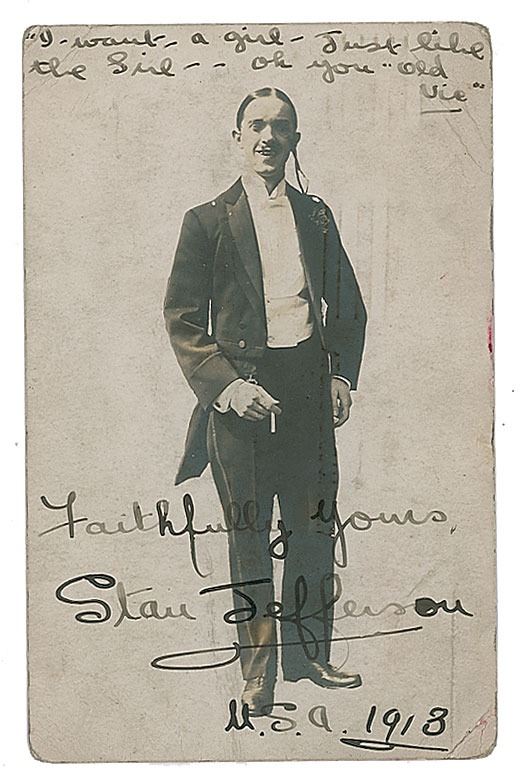 "I-want-a girl- Just like
the Girl-- oh you "old
Vic"
Faithfully Yours,
Stan Jefferson
U.S.A. 1913